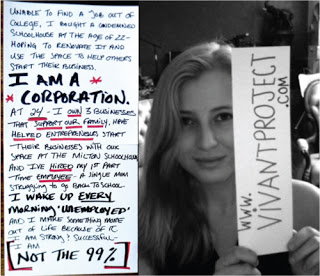 UNABLE TO FIND A JOB OUT OF
COLLEGE, I BOUGHT A CONDEMNED
SCHOOLHOUSE AT THE AGE OF 22-
HOPING TO RENOVATE IT AND
USE THE SPACE TO HELP OTHERS
START THEIR BUSINESS.
I AM A
* CORPORATION. *
AT 24 - I OWN 3 BUSINESSES
- THAT SUPPORT OUR FAMILY, HAVE
HELPED ENTREPRENEURS START
THEIR BUSINESSES WITH OUR
SPACE AT THE MILTON SCHOOLHOUSE
AND I'VE HIRED MY 1ST PART
-TIME EMPLOYEE - A SINGLE MOM
STRUGGLING TO GO BACK TO SCHOOL
I WAKE UP EVERY
MORNING 'UNEMPLOYED'
AND I MAKE SOMETHING MORE
OUT OF LIFE BECAUSE OF IT.
I AM STRONG & SUCCESSFUL -
I AM
[NOT THE 99%]
www.
VIVANTPROJECT
.com